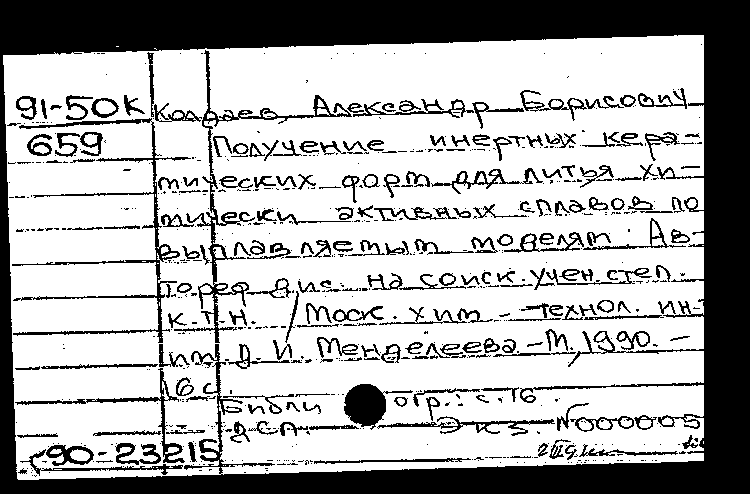 91-50К
659
Колдаев, Александр Борисович
Получение инертных кера-
мических форм для литья хи-
мически активных сплавов по
выплавляемым моделям: Ав-
тореф. дис. на соиск. учен. степ.
к.т.н. / Моск. хим. - технол. ин-т
им. Д. И. Менделеева - М., 1990. -
16 с.
Библиогр.: с. 16.
ДСП. Экз. №000005
90-23215